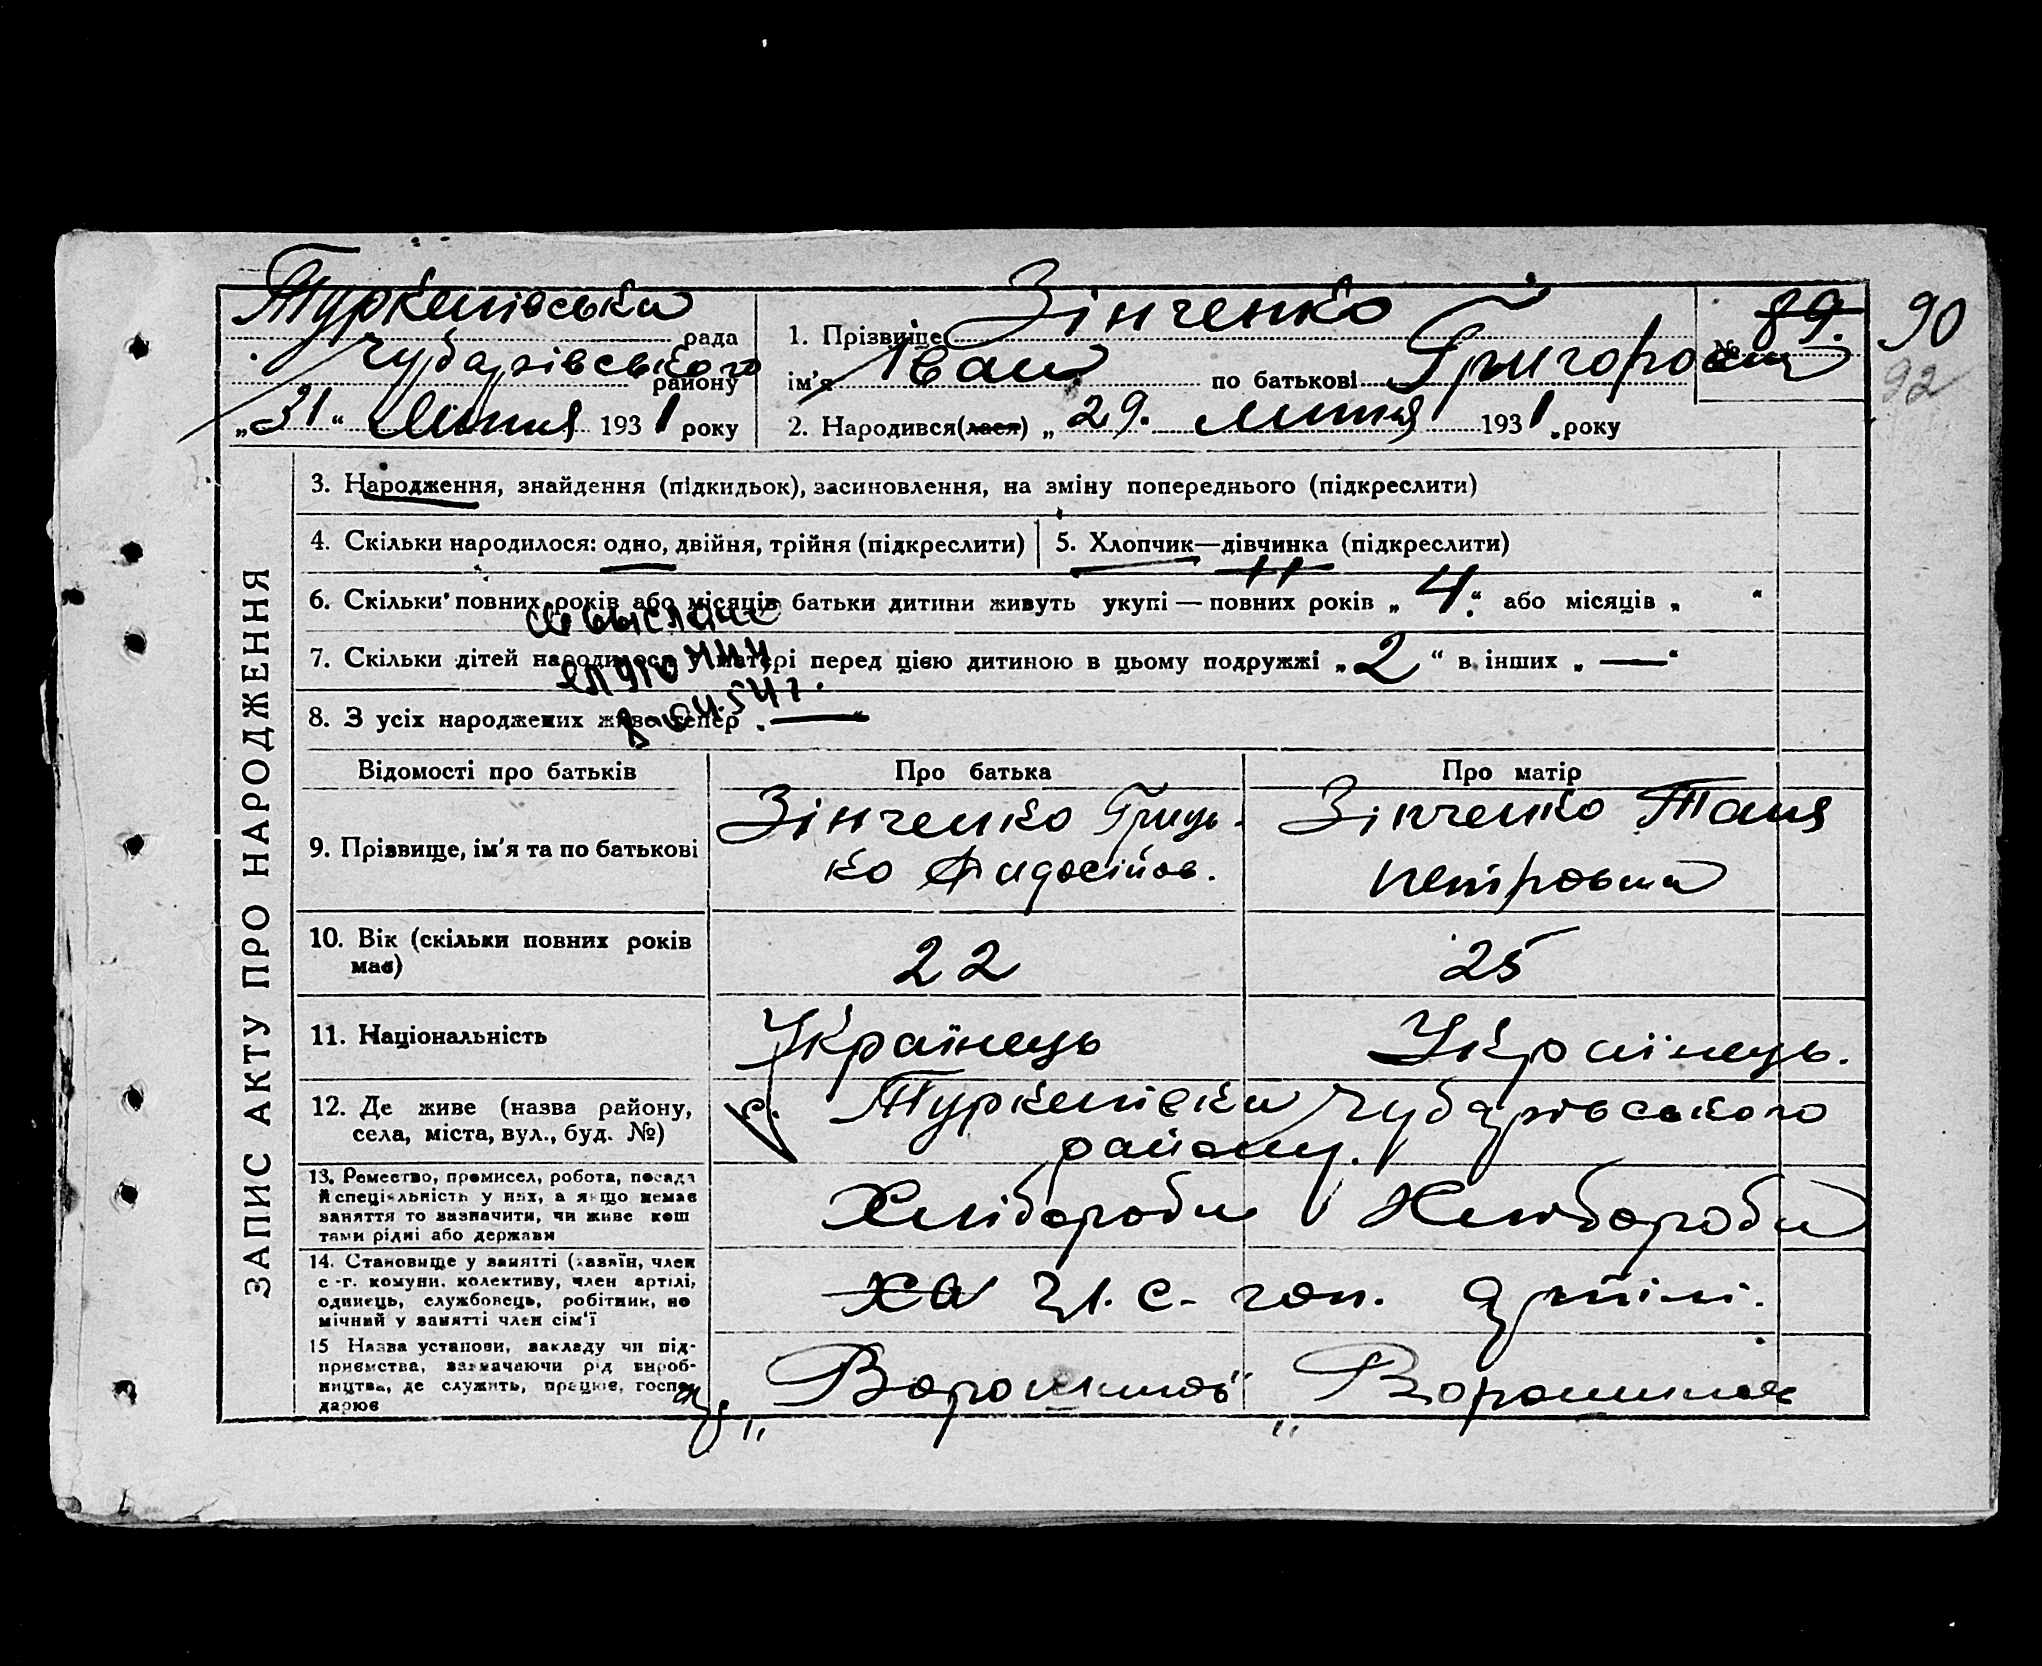 Туркенівська рада
Чубарівського району
„31“ Липня 1931 року
1. Прізвище Зінченко
ім'я Іван по батькові Григорович
№ 89. 90
92
2. Народився(лася) „29. липня 1931 року
ЗАПИС АКТУ ПРО НАРОДЖЕННЯ
3. Народження, знайдення (підкидьок), засиновлення, на зміну попереднього (підкреслити)
4. Скільки народилося: одно, двійня, трійня (підкреслити)
5. Хлопчик—дівчинка (підкреслити)
6. Скільки повних років або місяців батьки дитини живуть укупі — повних років „4“ або місяців „ “
7. Скільки дітей народилося у матері перед цією дитиною в цьому подружжі „2“ в інших „—“
8. З усіх народжених живе тепер „—“
Відомості про батьків
Про батька
Про матір
9. Прізвище, ім'я та по батькові
Зінченко Гриць-
ко Фидосійов.
Зінченко Таня
Петровна
10. Вік (скільки повних років
має)
22
25
11. Національність
Українець
Українець.
12. Де живе (назва району,
села, міста, вул., буд. №)
с. Туркенівка Чубарівського
району.
13. Ремество, промисел, робота, посада
й спеціяльність у них, а якщо немає
заняття то зазначити, чи живе кош
тами рідні або держави
Хлібороби
Хлібороби
14. Становище у занятті (хазяїн, член
с.-г. комуни, колективу, член артілі,
одинець, службовець, робітник, по
мічний у занятті член сім'ї
Ха чл. с- гоп. артілі.
15 Назва установи, закладу чи під-
приємства, зазначаючи рід вироб-
ництва, де служить, працює, госпо-
дарює
„Ворошилов“
„Ворошилов